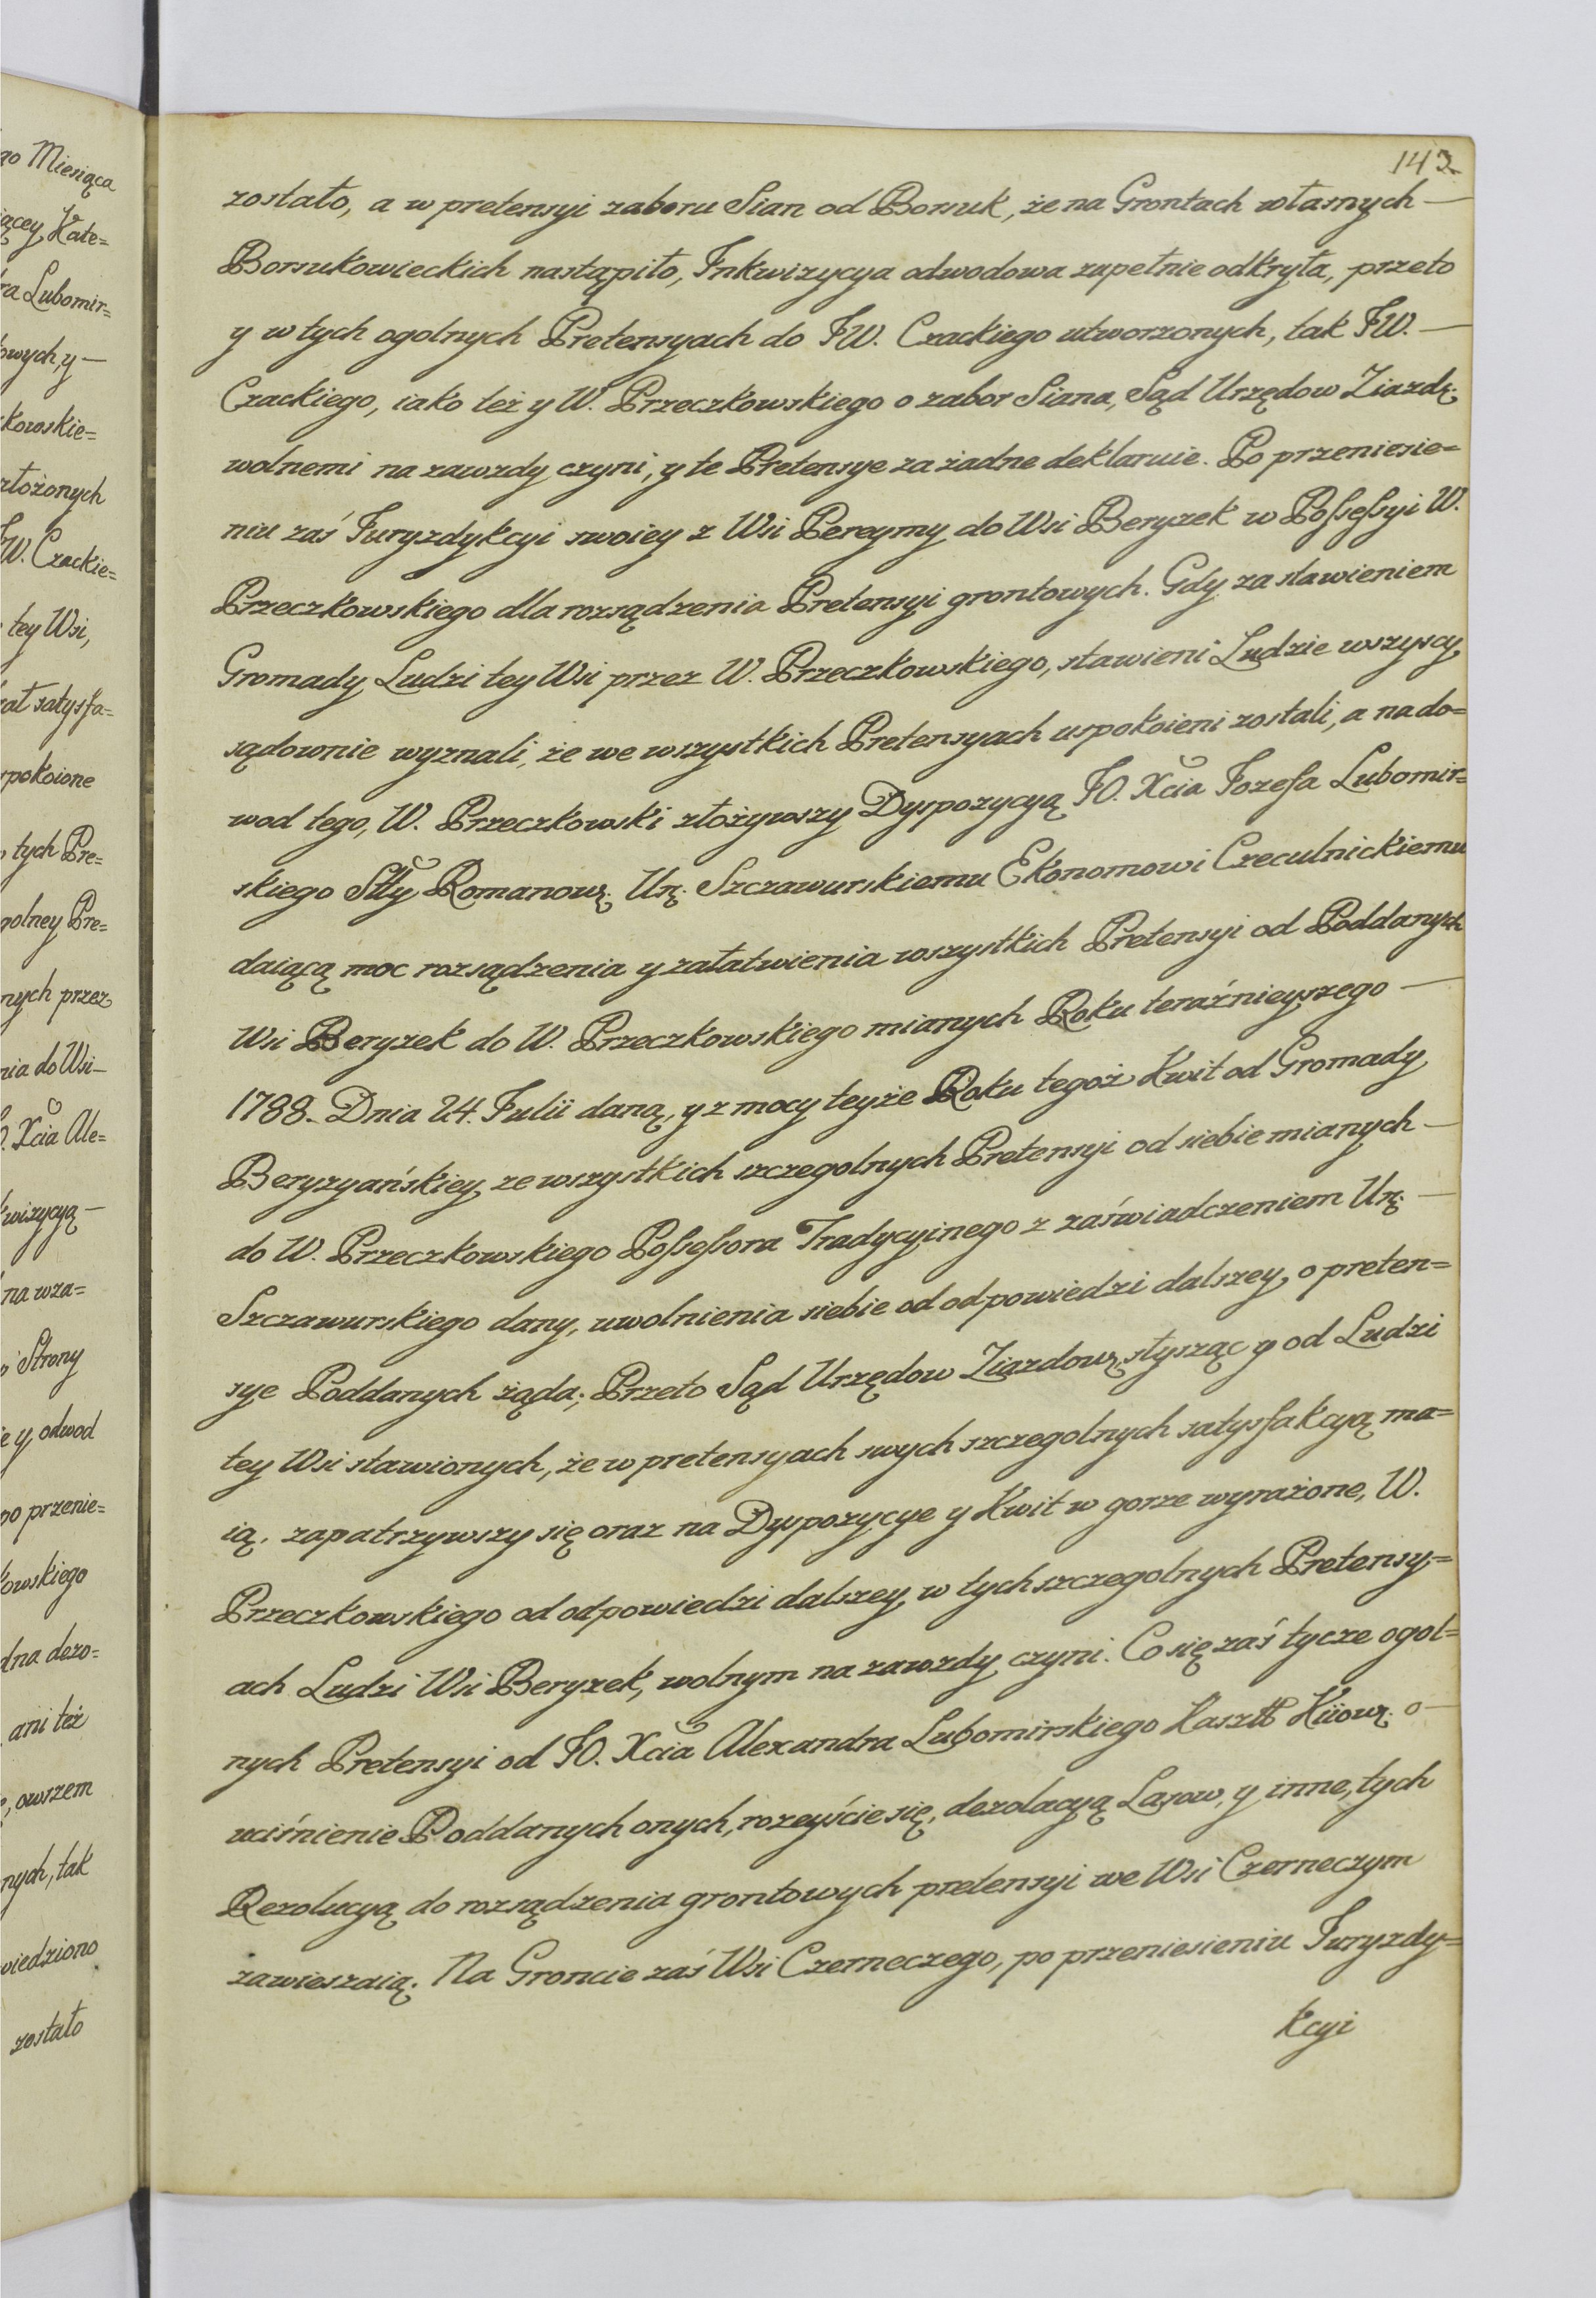 142
zostało, a w pretensyi zaboru Sian od Borsuk, że na Grontach własnych —
Borsukowieckich nastąpiło, Inkwizycya odwodowa zupełnie odkryła, przeto
y w tych ogolnych Pretensyach do JW. Czackiego utworzonych, tak JW. —
Czackiego, iako też y W. Przeczkowskiego o zabor Siana, Sąd Urzędow Ziazdę.
wolnemi na zawzdy czyni, y te Pretensye za żadne deklaruie. Po przeniesie=
niu zaś Juryzdykcyi swoiey z Wsi Pereymy do Wsi Beryzek w Possessyi W.
Przeczkowskiego dla rozsądzenia Pretensyi grontowych. Gdy za stawieniem
Gromady Ludzi tey Wsi przez W. Przeczkowskiego, stawieni Ludzie wszyscy
sądownie wyznali, że we wszystkich Pretensyach uspokoieni zostali, a na do=
wod tego, W. Przeczkowski złożywszy Dyspozycyą JO. Xcia Jozefa Lubomir=
skiego Stty Romanowę. Urę. Szczawurskiemu Ekonomowi Czeculnickiemu
daiącą moc rozsądzenia y załatwienia wszystkich Pretensyi od Poddanych
Wsi Beryzek do W. Przeczkowskiego mianych Roku teraźnieyszego —
1788. Dnia 24. Julii daną, y z mocy teyże Roku tegoż Kwit od Gromady
Beryzyańskiey ze wszystkich szczegolnych Pretensyi od siebie mianych —
do W. Przeczkowskiego Possessora Tradycyinego z zaświadczeniem Urę. —
Szczawurskiego dany, uwolnienia siebie od odpowiedzi dalszey, o preten=
sye Poddanych żąda; Przeto Sąd Urzędow Ziazdowę. słysząc y od Ludzi
tey Wsi stawionych, że w pretensyach swych szczegolnych satysfakcyą ma=
ią, zapatrzywszy się oraz na Dyspozycye y Kwit w gorze wyrażone, W.
Przeczkowskiego od odpowiedzi dalszey w tych szczegolnych Pretensy=
ach Ludzi Wsi Beryzek, wolnym na zawzdy czyni. Co się zaś tycze ogol=
nych Pretensyi od JO. Xcia Alexandra Lubomirskiego Kasztt Kiiowę. o —
uciśnienie Poddanych onych, rozeyście się, dezolacyą Lasow, y inne, tych
Rezolucyą do rozsądzenia grontowych pretensyi we Wsi Czerneczym
zawieszaią. Na Groncie zaś Wsi Czerneczego, po przeniesieniu Juryzdy=
kcyi
go Miesiąca
iącey Kate=
ra Lubomir=
owych, y —
kowskie=
złożonych
JW. Czackie=
tey Wsi,
satysfa=
spokoione
tych Pre=
golney Pre=
nych przez
nia do Wsi —
Xcia Ale=
kwizycyą —
na wza=
Strony
ie y odwod
po przenie=
kowskiego
dna dezo=
ani też
, owszem
nych, tak
wiedziono
zostało